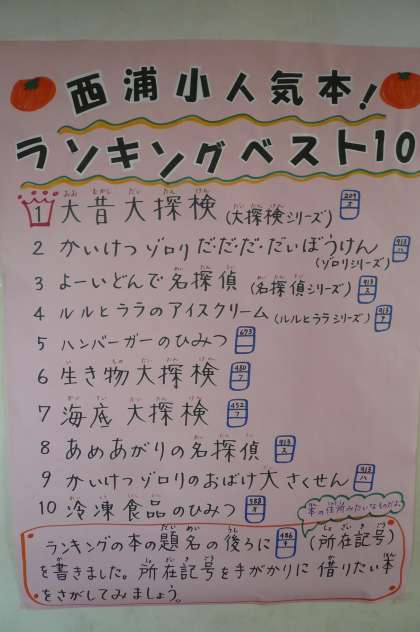 西浦小人気本!
ランキングベスト10
1 大昔大探検(大探検シリーズ) 209
2 かいけつゾロリだ・だ・だ・だいぼうけん 913 ハ
(ゾロリシリーズ)
3 よーいどんで名探偵(名探偵シリーズ) 913 ス
4 ルルとララのアイスクリーム(ルルとララシリーズ) 913 ア
5 ハンバーガーのひみつ 673
6 生き物大探検 480 フ
7 海底大探検 452 フ
8 あめあがりの名探偵 913 ス
9 かいけつゾロリのおばけ大さくせん 913 ハ
10 冷凍食品のひみつ 588 オ
本の住所みたいなものだよ。
ランキングの本の題名の後ろに 486 (所在記号)
を書きました。所在記号を手がかりに借りたい本
をさがしてみましょう。